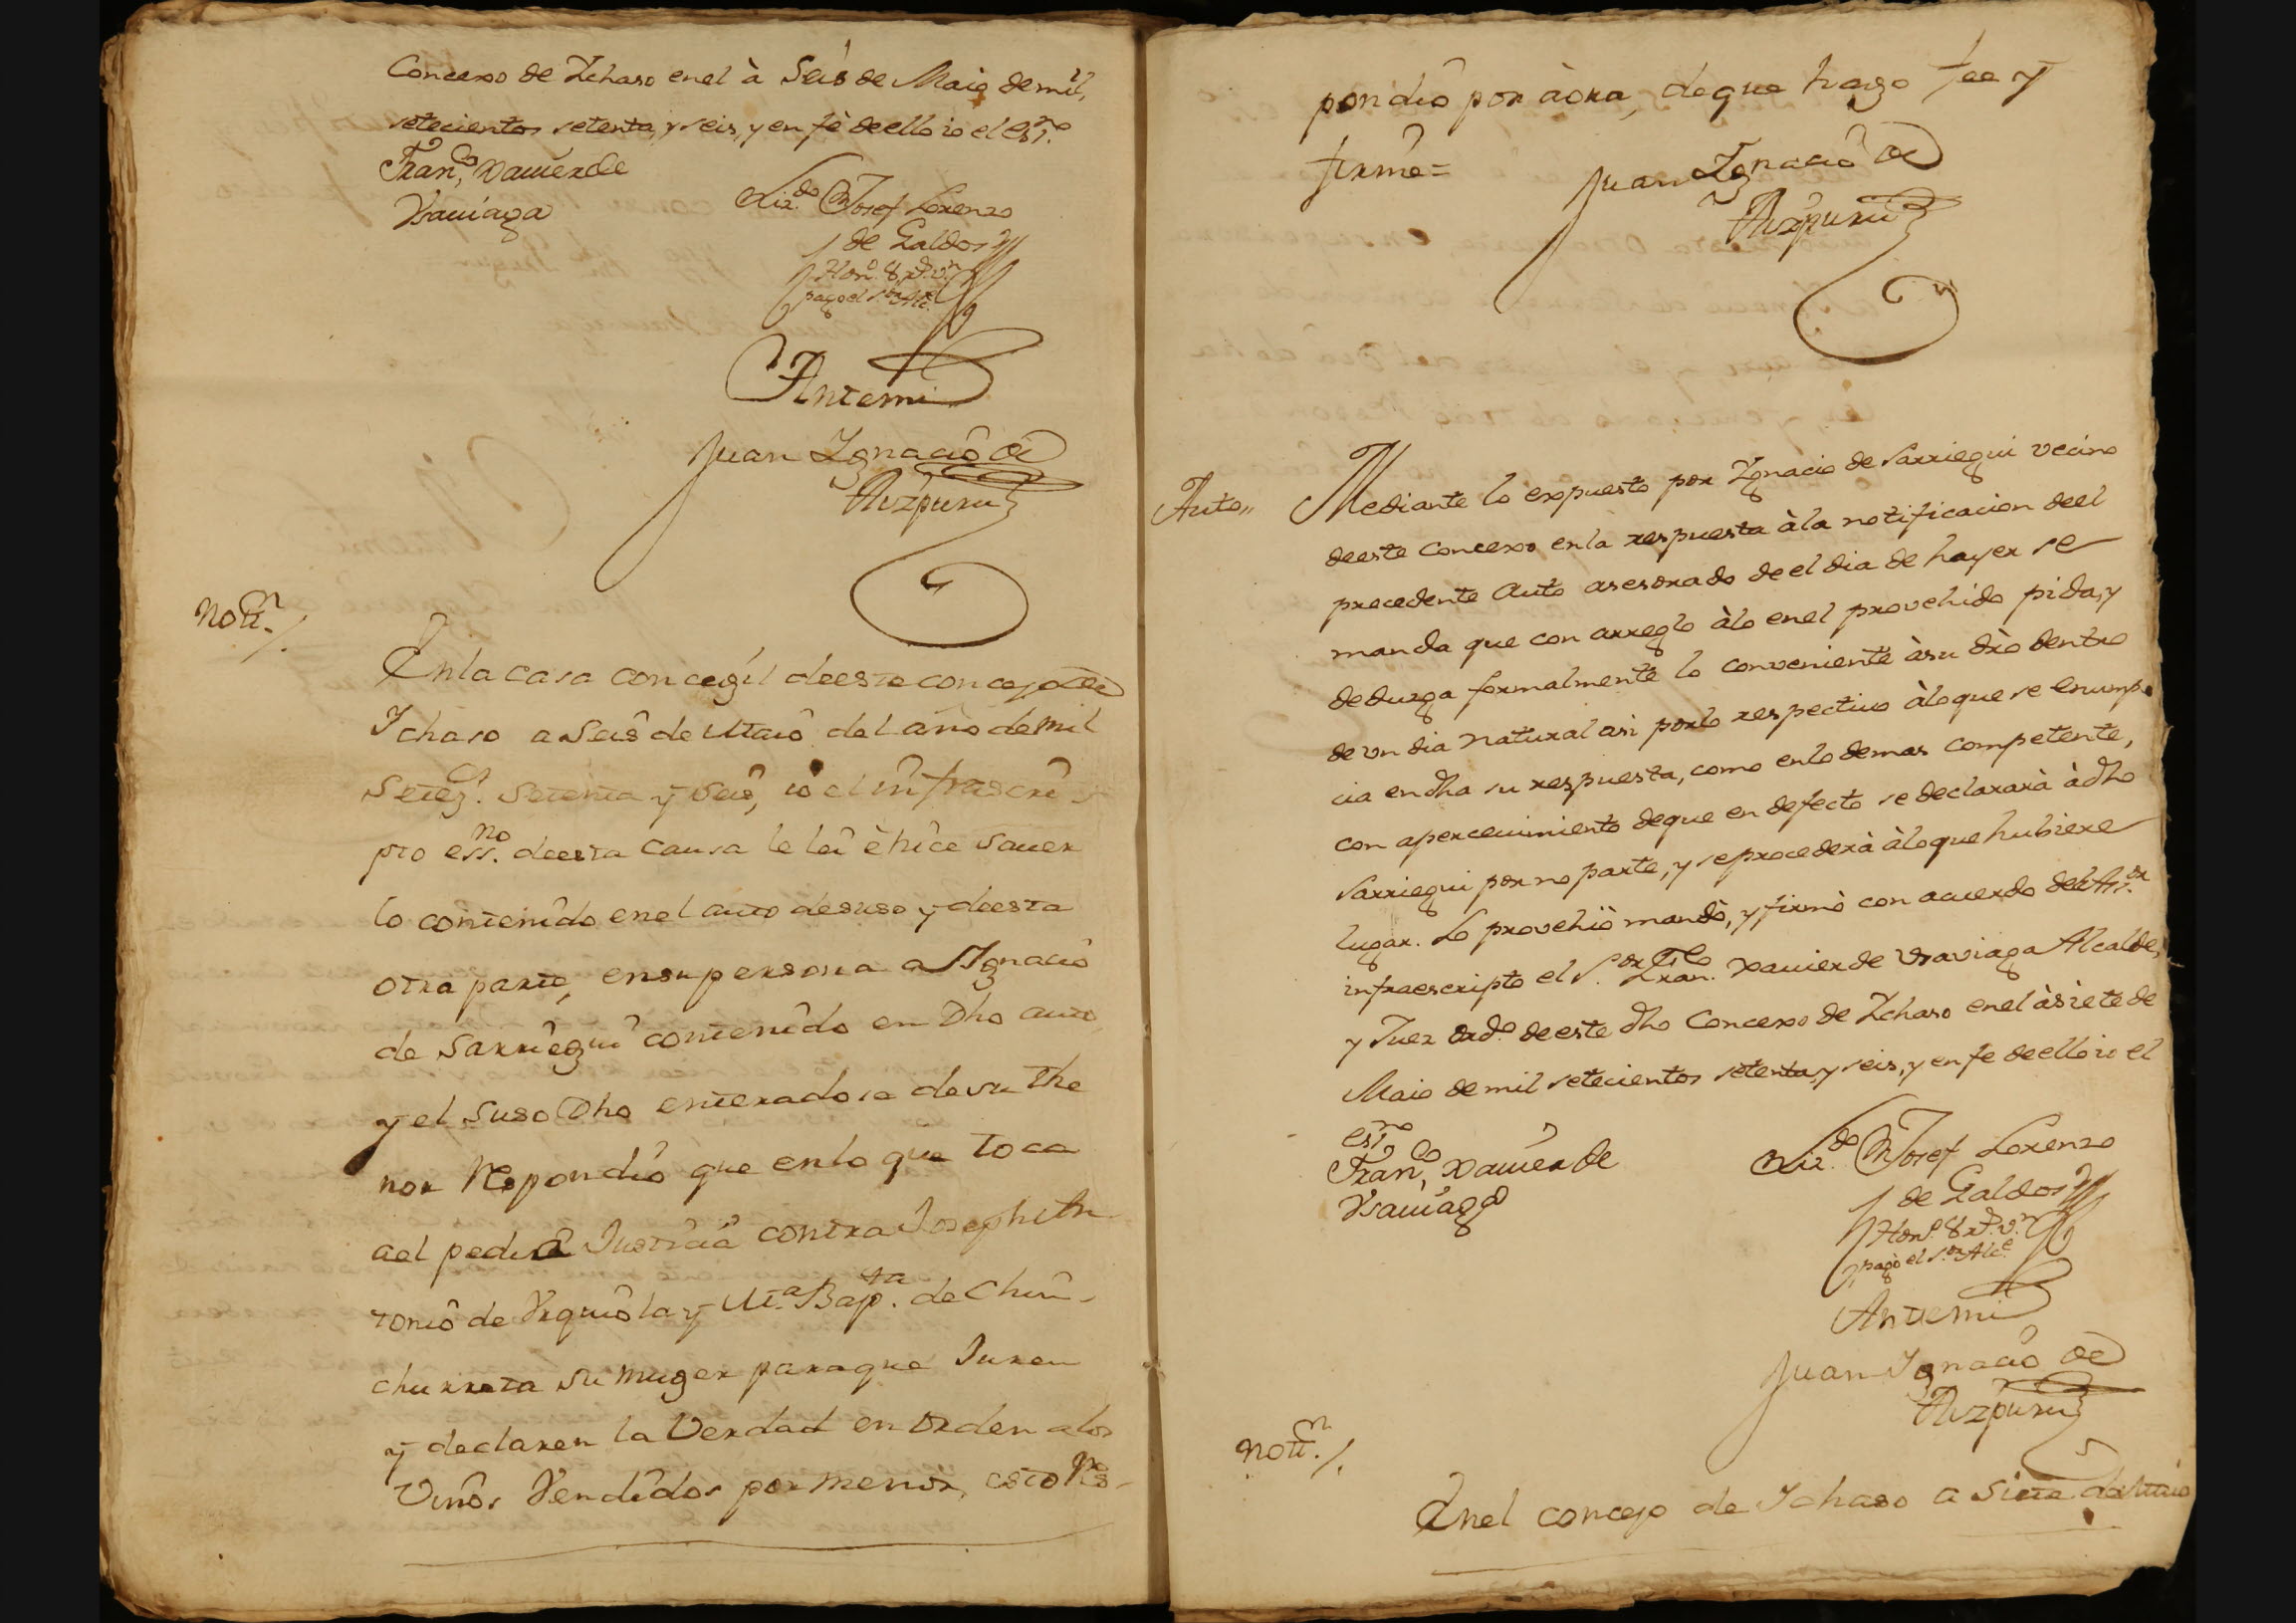 Concexo de Ychaso en el à Seis de Maio de mil,
setecientos setenta, y seis, y en fè de ello io el esno.
Franco, Xavier de
Vraviaga
Lizdo. Dn Josef Lorenzo
de Galdos
Hono. 8 rs. vn.
pagò el Sor Alce.
Antemi
Juan Ygnacio de
Aizpuru
Nottn./.
En la casa concegil de este concejo de
Ychaso a Seis de Maio del año de mil
Setezs. Setenta y Seis, io el infrascri
pto essno. de esta Causa le lei è hice saver
lo contenido en el auto de suso y de esta
otra parte, en su persona a Ygnacio
de Sarriegui contenido en Dho auto,
y el suso Dho enterado se de su the
nor Respondio que en lo que toca
a el pedir Justicia contra Joseph An
tonio de Vrquiola y Ma. Bapta. de Chin-
churreta su muger para que Juren
y declaren la Verdad en orden a los
Vinos Vendidos por menor, esto Res-
pondio por àora, de que hago fee y
firmè=
Juan Ygnacio de
Aizpuru
Auto,,
Mediante lo expuesto por Ygnacio de Sarriegui vecino
de este Concexo en la respuesta à la notificacion de el
precedente Auto asesorado de el dia de hayer se
manda que con arreglo à lo en el provehido pida, y
deduzga formalmente lo conveniente à su dro dentro
de vn dia natural asi por lo respectiuo à lo que se enump
cia en dha su respuesta, como en lo demas competente,
con apercevimiento de que en defecto se declararà à dho
Sarriegui por no parte, y se procederà à lo que hubiere
lugar. Lo provehiò mandò, y firmò con acuerdo del Assor.
infraescripto el Sor. Dn Franco. Xavier de Vraviaga Alcalde,
y Juez ordo. de este dho Concexo de Ychaso en el à siete de
Maio de mil setecientos setenta, y seis, y en fe de ello io el
esno
Franco, Xavier de
Vraviaga
Lizdo. Dn Josef Lorenzo
de Galdos
Hono. 8 rs. vn.
pagò el Sor Alce.
Antemi
Juan Ygnacio de
Aizpuru
Nottn./.
En el concejo de Ychaso a Siete de Maio